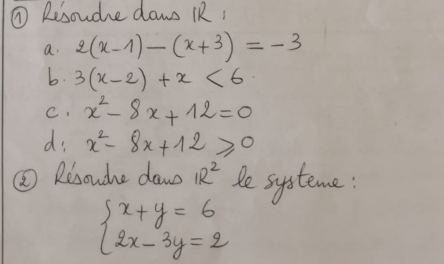 ① Résoudre dans ℝ :
a. 2(x-1) - (x+3) = -3
b. 3(x-2) + x < 6.
c. x² - 8x + 12 = 0
d. x² - 8x + 12 ⩾ 0
② Résoudre dans ℝ² le systeme :
{ x + y = 6
{ 2x - 3y = 2